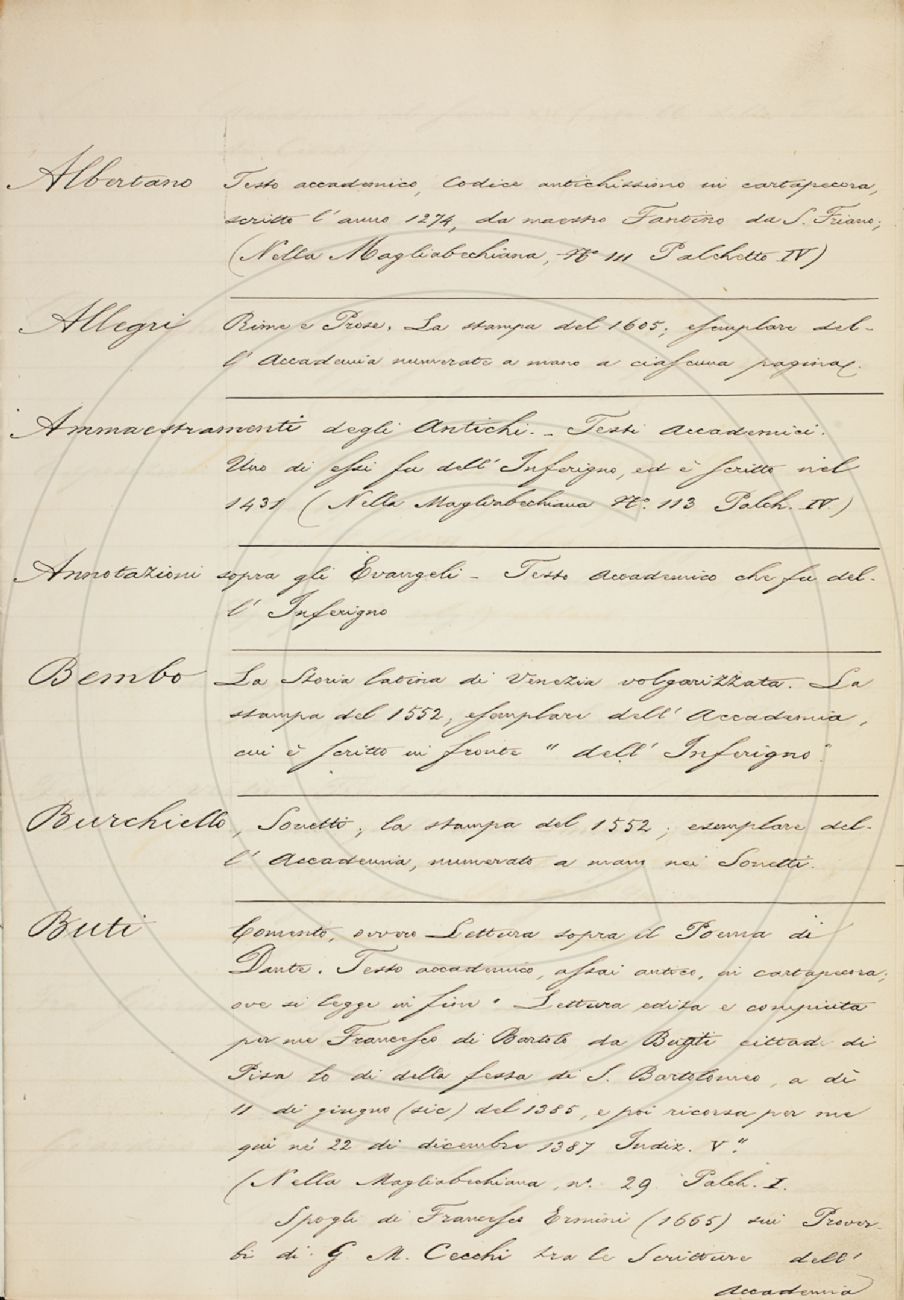 Albertano Testo accademico, Codice antichissimo in cartapecora,
scritto l'anno 1274, da maestro Fantino da S. Friano;
(Nella Magliabechiana, No 111 Palchetto IV)
Allegri Rime e Prose. La stampa del 1605; esemplare del-
l'Accademia numerato a mano a ciascuna pagina.
Ammaestramenti degli Antichi. – Testi Accademici.
Uno di essi fu dell'Inferigno, ed è scritto nel
1431 (Nella Magliabechiana No. 113 Palch. IV.)
Annotazioni sopra gli Evangeli – Testo Accademico che fu del-
l'Inferigno
Bembo La Storia latina di Venezia volgarizzata. La
stampa del 1552, esemplare dell'Accademia,
cui è scritto in fronte "dell'Inferigno".
Burchiello, Sonetti; la stampa del 1552; esemplare del-
l'Accademia, numerato a mano nei Sonetti.
Buti Comento, ovvero Lettura sopra il Poema di
Dante. Testo accademico, assai antico, in cartapecora;
ove si legge in fine "Lettura edita e compiuta
per me Francesco di Bartolo da Buti cittad. di
Pisa lo di della festa di S. Bartolomeo, a dì
11 di giugno (sic) del 1385, e poi ricorsa per me
qui nè 22 di dicembre 1387 Indiz. V."
(Nella Magliabechiana, n. 29 Palch. I.
Spogli di Francesco Ermini (1665) sui Prover-
bi di G M. Cecchi tra le Scritture dell'
Accademia